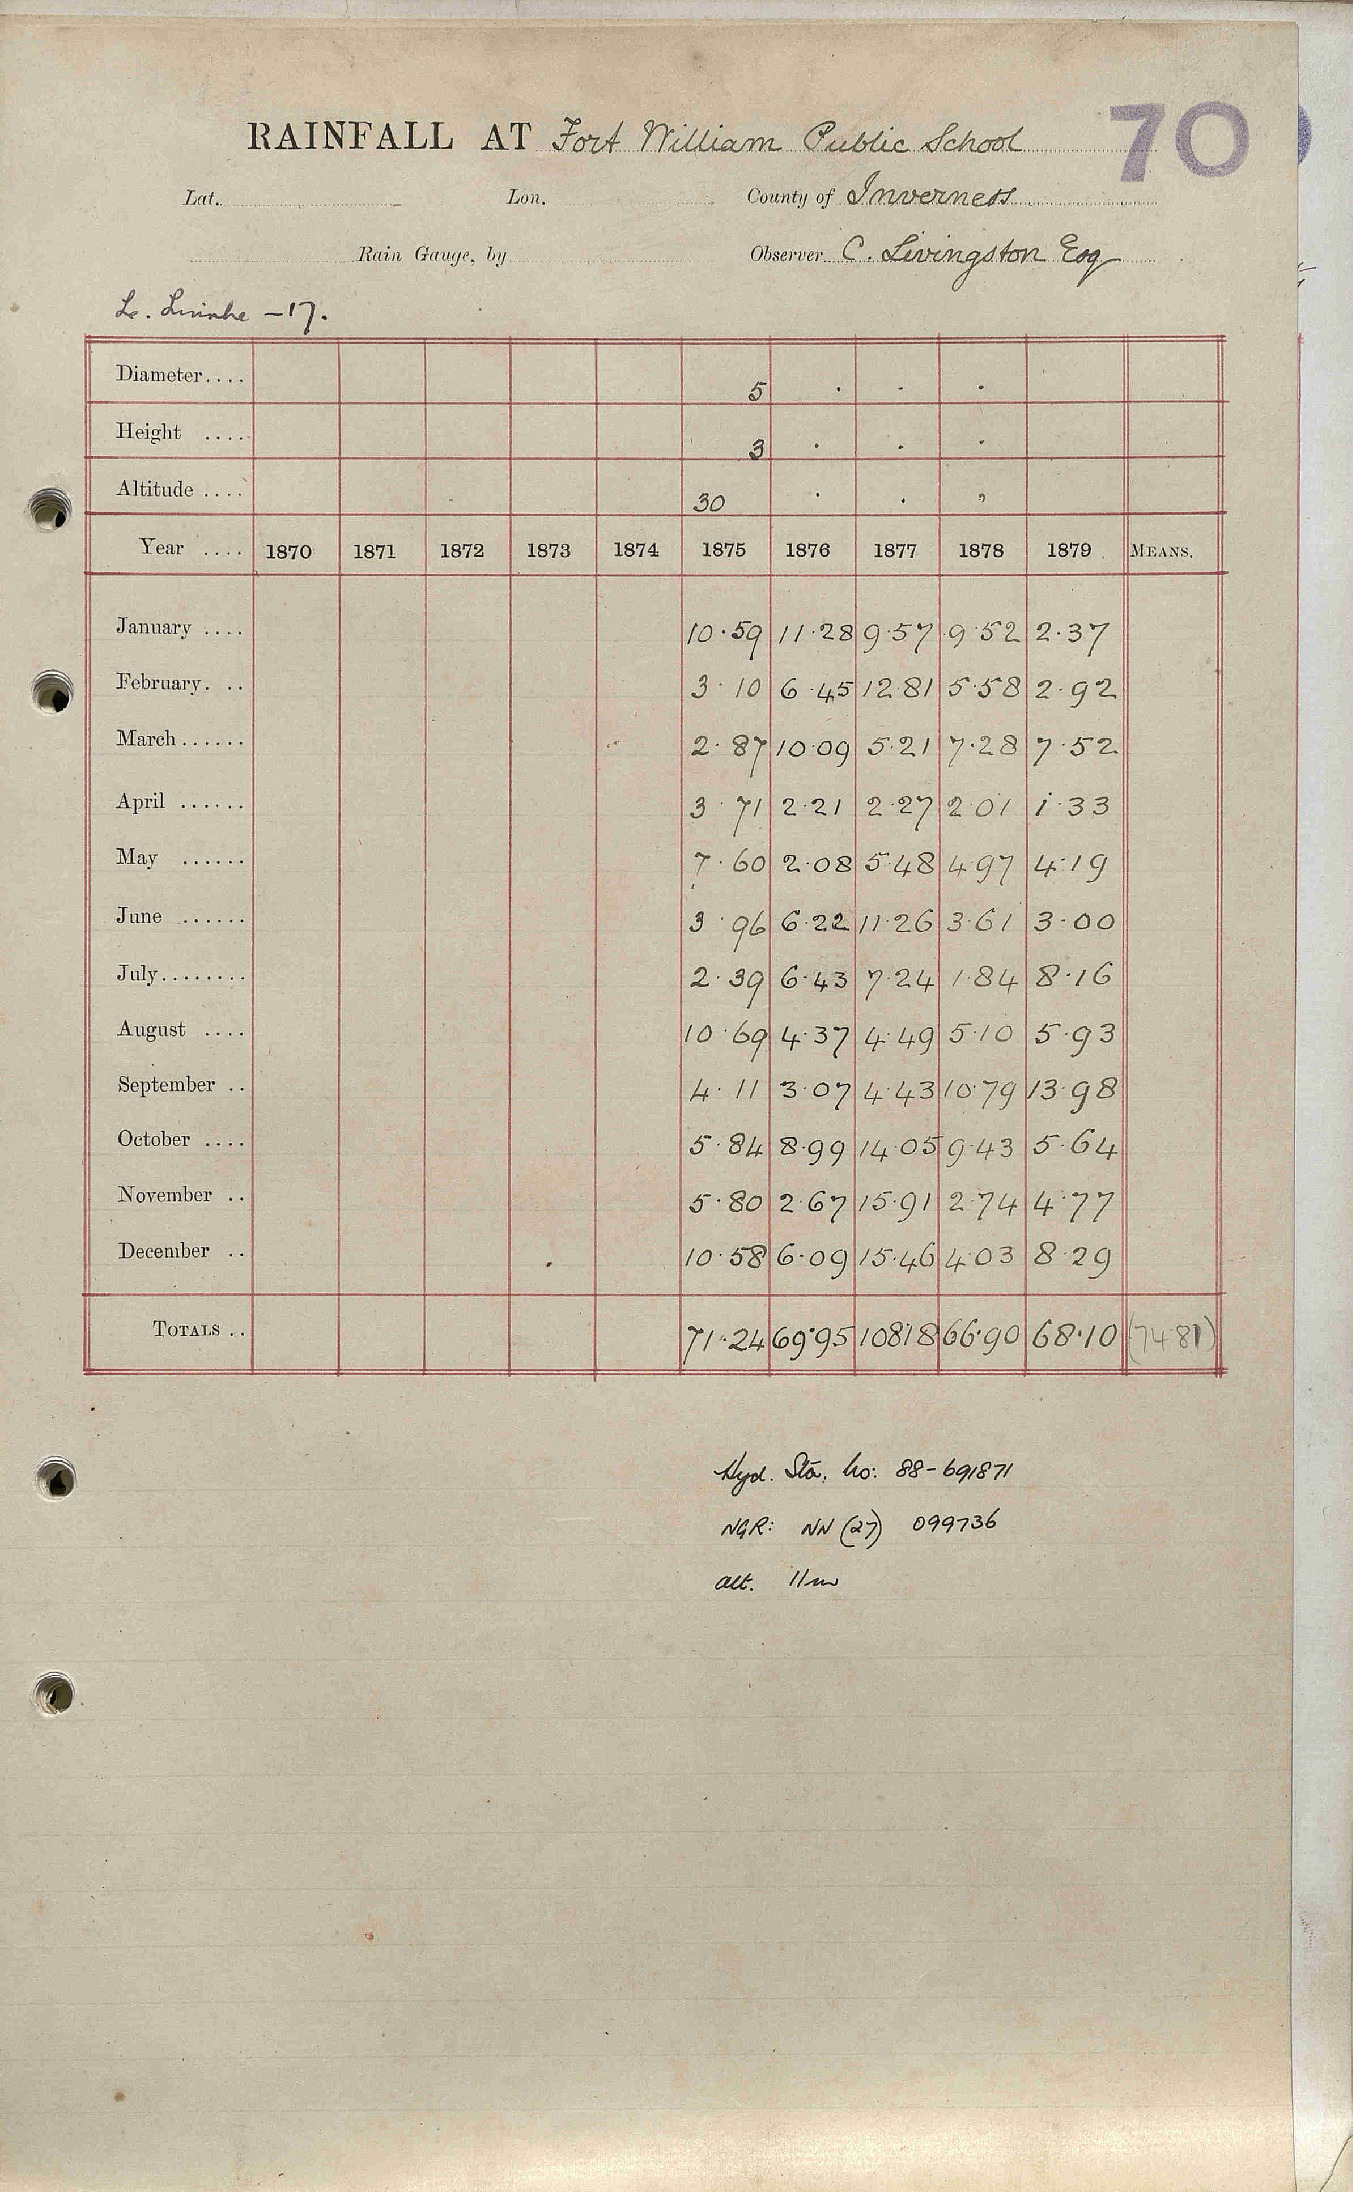 70
RAINFALL AT Fort William Public School
Lat. Lon. County of Inverness
Rain Gauge, by Observer C. Livingston Esq
L. Linnhe - 17.
Diameter.... 5 · · ·
Height .... 3 · · ·
Altitude .... 30 · · "
Year .... 1870 1871 1872 1873 1874 1875 1876 1877 1878 1879 MEANS.
January .... 10·59 11·28 9·57 9·52 2·37
February. .. 3·10 6·45 12·81 5·58 2·92
March...... 2·87 10·09 5·21 7·28 7·52
April ...... 3·71 2·21 2·27 2·01 1·33
May ...... 7·60 2·08 5·48 4·97 4·19
June ...... 3·96 6·22 11·26 3·61 3·00
July........ 2·39 6·43 7·24 1·84 8·16
August .... 10·69 4·37 4·49 5·10 5·93
September .. 4·11 3·07 4·43 10·79 13·98
October .... 5·84 8·99 14·05 9·43 5·64
November .. 5·80 2·67 15·91 2·74 4·77
December .. 10·58 6·09 15·46 4·03 8·29
TOTALS .. 71·24 69·95 10818 66·90 68·10 (74·81)
Hyd. Sta. No: 88-691871
NGR: NN (27) 099736
alt. 11m